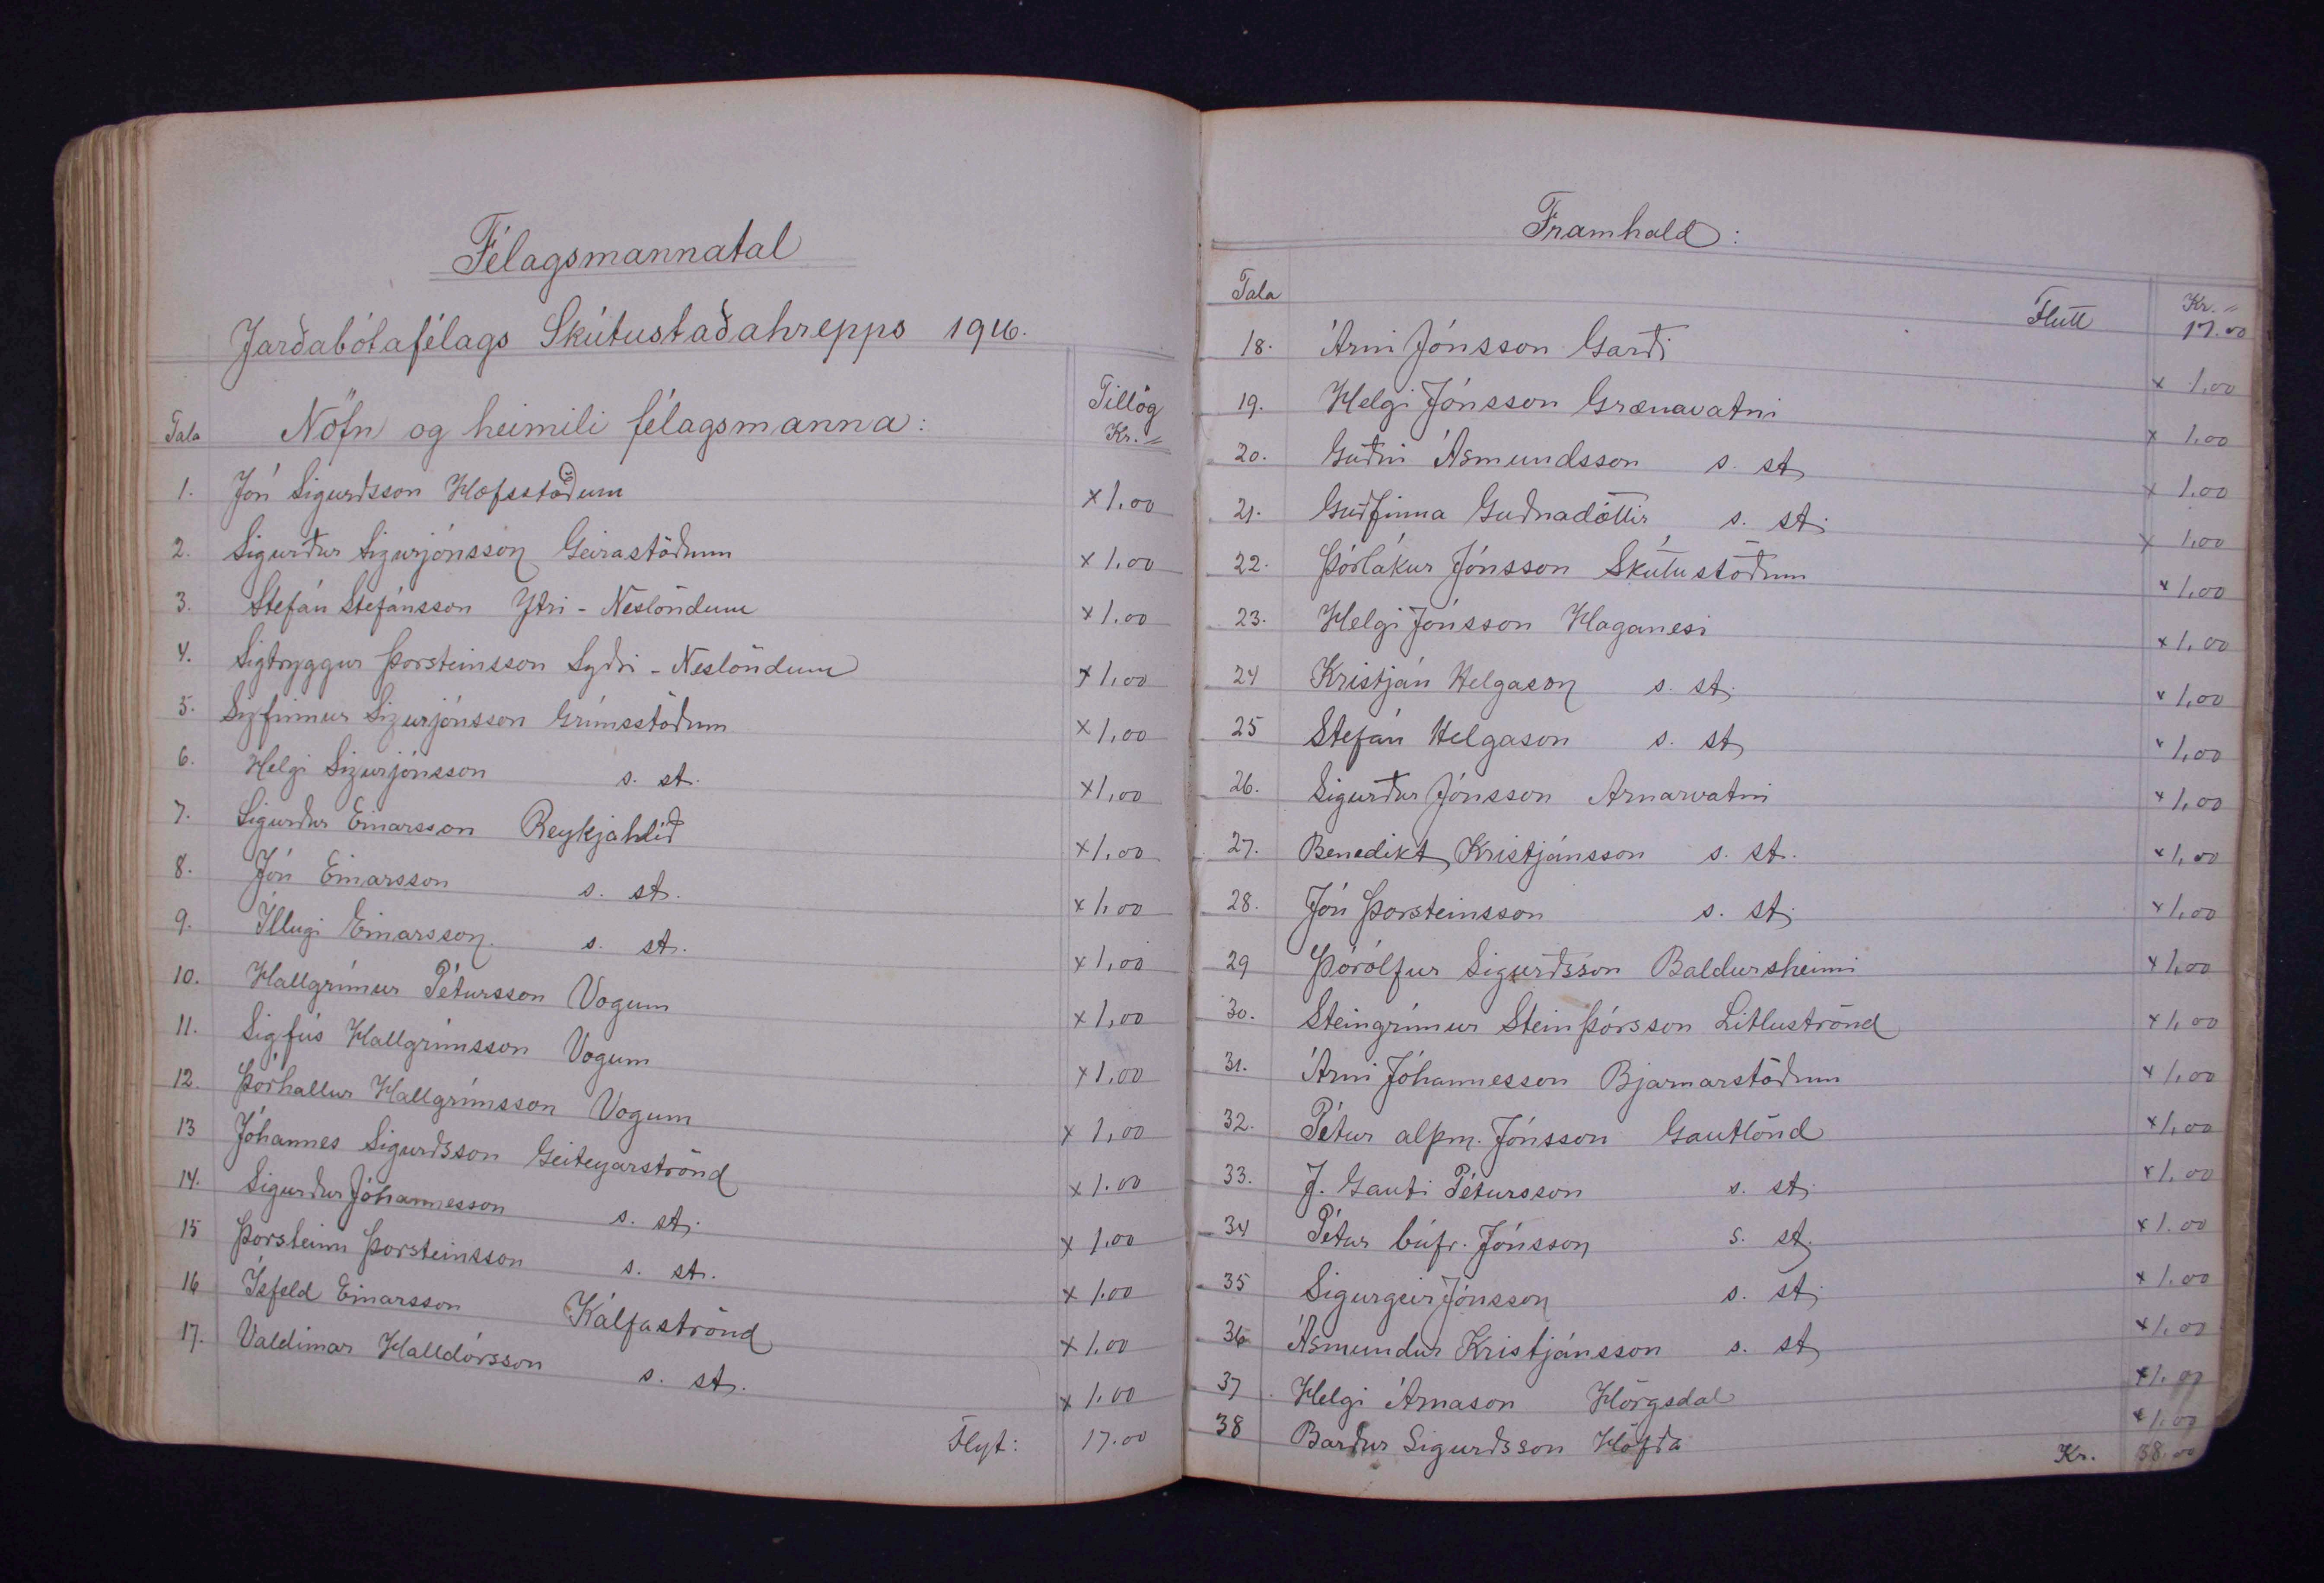 Félagsmannatal
Jarðabótafélags Skútustaðahrepps 1916.
Tala Nöfn og heimili félagsmanna: Tillög Kr. "
1. Jón Sigurðsson Hofsstöðum × 1.00
2. Sigurður Sigurjónsson Geirastöðum × 1.00
3. Stefán Stefánsson Ytri-Neslöndum × 1.00
4. Sigtryggur Þorsteinsson Syðri-Neslöndum × 1.00
5. Sigfinnur Sigurjónsson Grímsstöðum × 1.00
6. Helgi Sigurjónsson s. st. × 1.00
7. Sigurður Einarsson Reykjahlíð × 1.00
8. Jón Einarsson s. st. × 1.00
9. Illugi Einarsson s. st. × 1.00
10. Hallgrímur Pétursson Vogum × 1.00
11. Sigfús Hallgrímsson Vogum × 1.00
12. Þórhallur Hallgrímsson Vogum × 1.00
13 Jóhannes Sigurðsson Geiteyarströnd × 1.00
14. Sigurður Jóhannesson s. st. × 1.00
15 Þorsteinn Þorsteinsson s. st. × 1.00
16 Ísfeld Einarsson Kálfaströnd × 1.00
17. Valdimar Halldórsson s. st. × 1.00
Flyt: 17.00
Framhald:
Tala Kr. "
Flutt 17.00
18. Árni Jónsson Garði × 1.00
19. Helgi Jónsson Grænavatni × 1.00
20. Guðni Ásmundsson s. st. × 1.00
21. Guðfinna Guðnadóttir s. st. × 1.00
22. Þórlákur Jónsson Skútustöðum × 1.00
23. Helgi Jónsson Haganesi × 1.00
24 Kristján Helgason s. st. × 1.00
25 Stefán Helgason s. st. × 1.00
26. Sigurður Jónsson Arnarvatni × 1.00
27. Benedikt Kristjánsson s. st. × 1.00
28. Jón Þorsteinsson s. st. × 1.00
29 Þórólfur Sigurðsson Baldursheimi × 1.00
30. Steingrímur Steinþórsson Litluströnd × 1.00
31. Árni Jóhannesson Bjarnarstöðum × 1.00
32. Pétur alþm. Jónsson Gautlönd × 1.00
33. J. Gauti Pétursson s. st. × 1.00
34 Pétur búfr. Jónsson s. st. × 1.00
35 Sigurgeir Jónsson s. st. × 1.00
36 Ásmundur Kristjánsson s. st. × 1.00
37. Helgi Árnason Hörgsdal × 1.00
38 Barður Sigurðsson Höfða × 1.00
Kr. 38.00